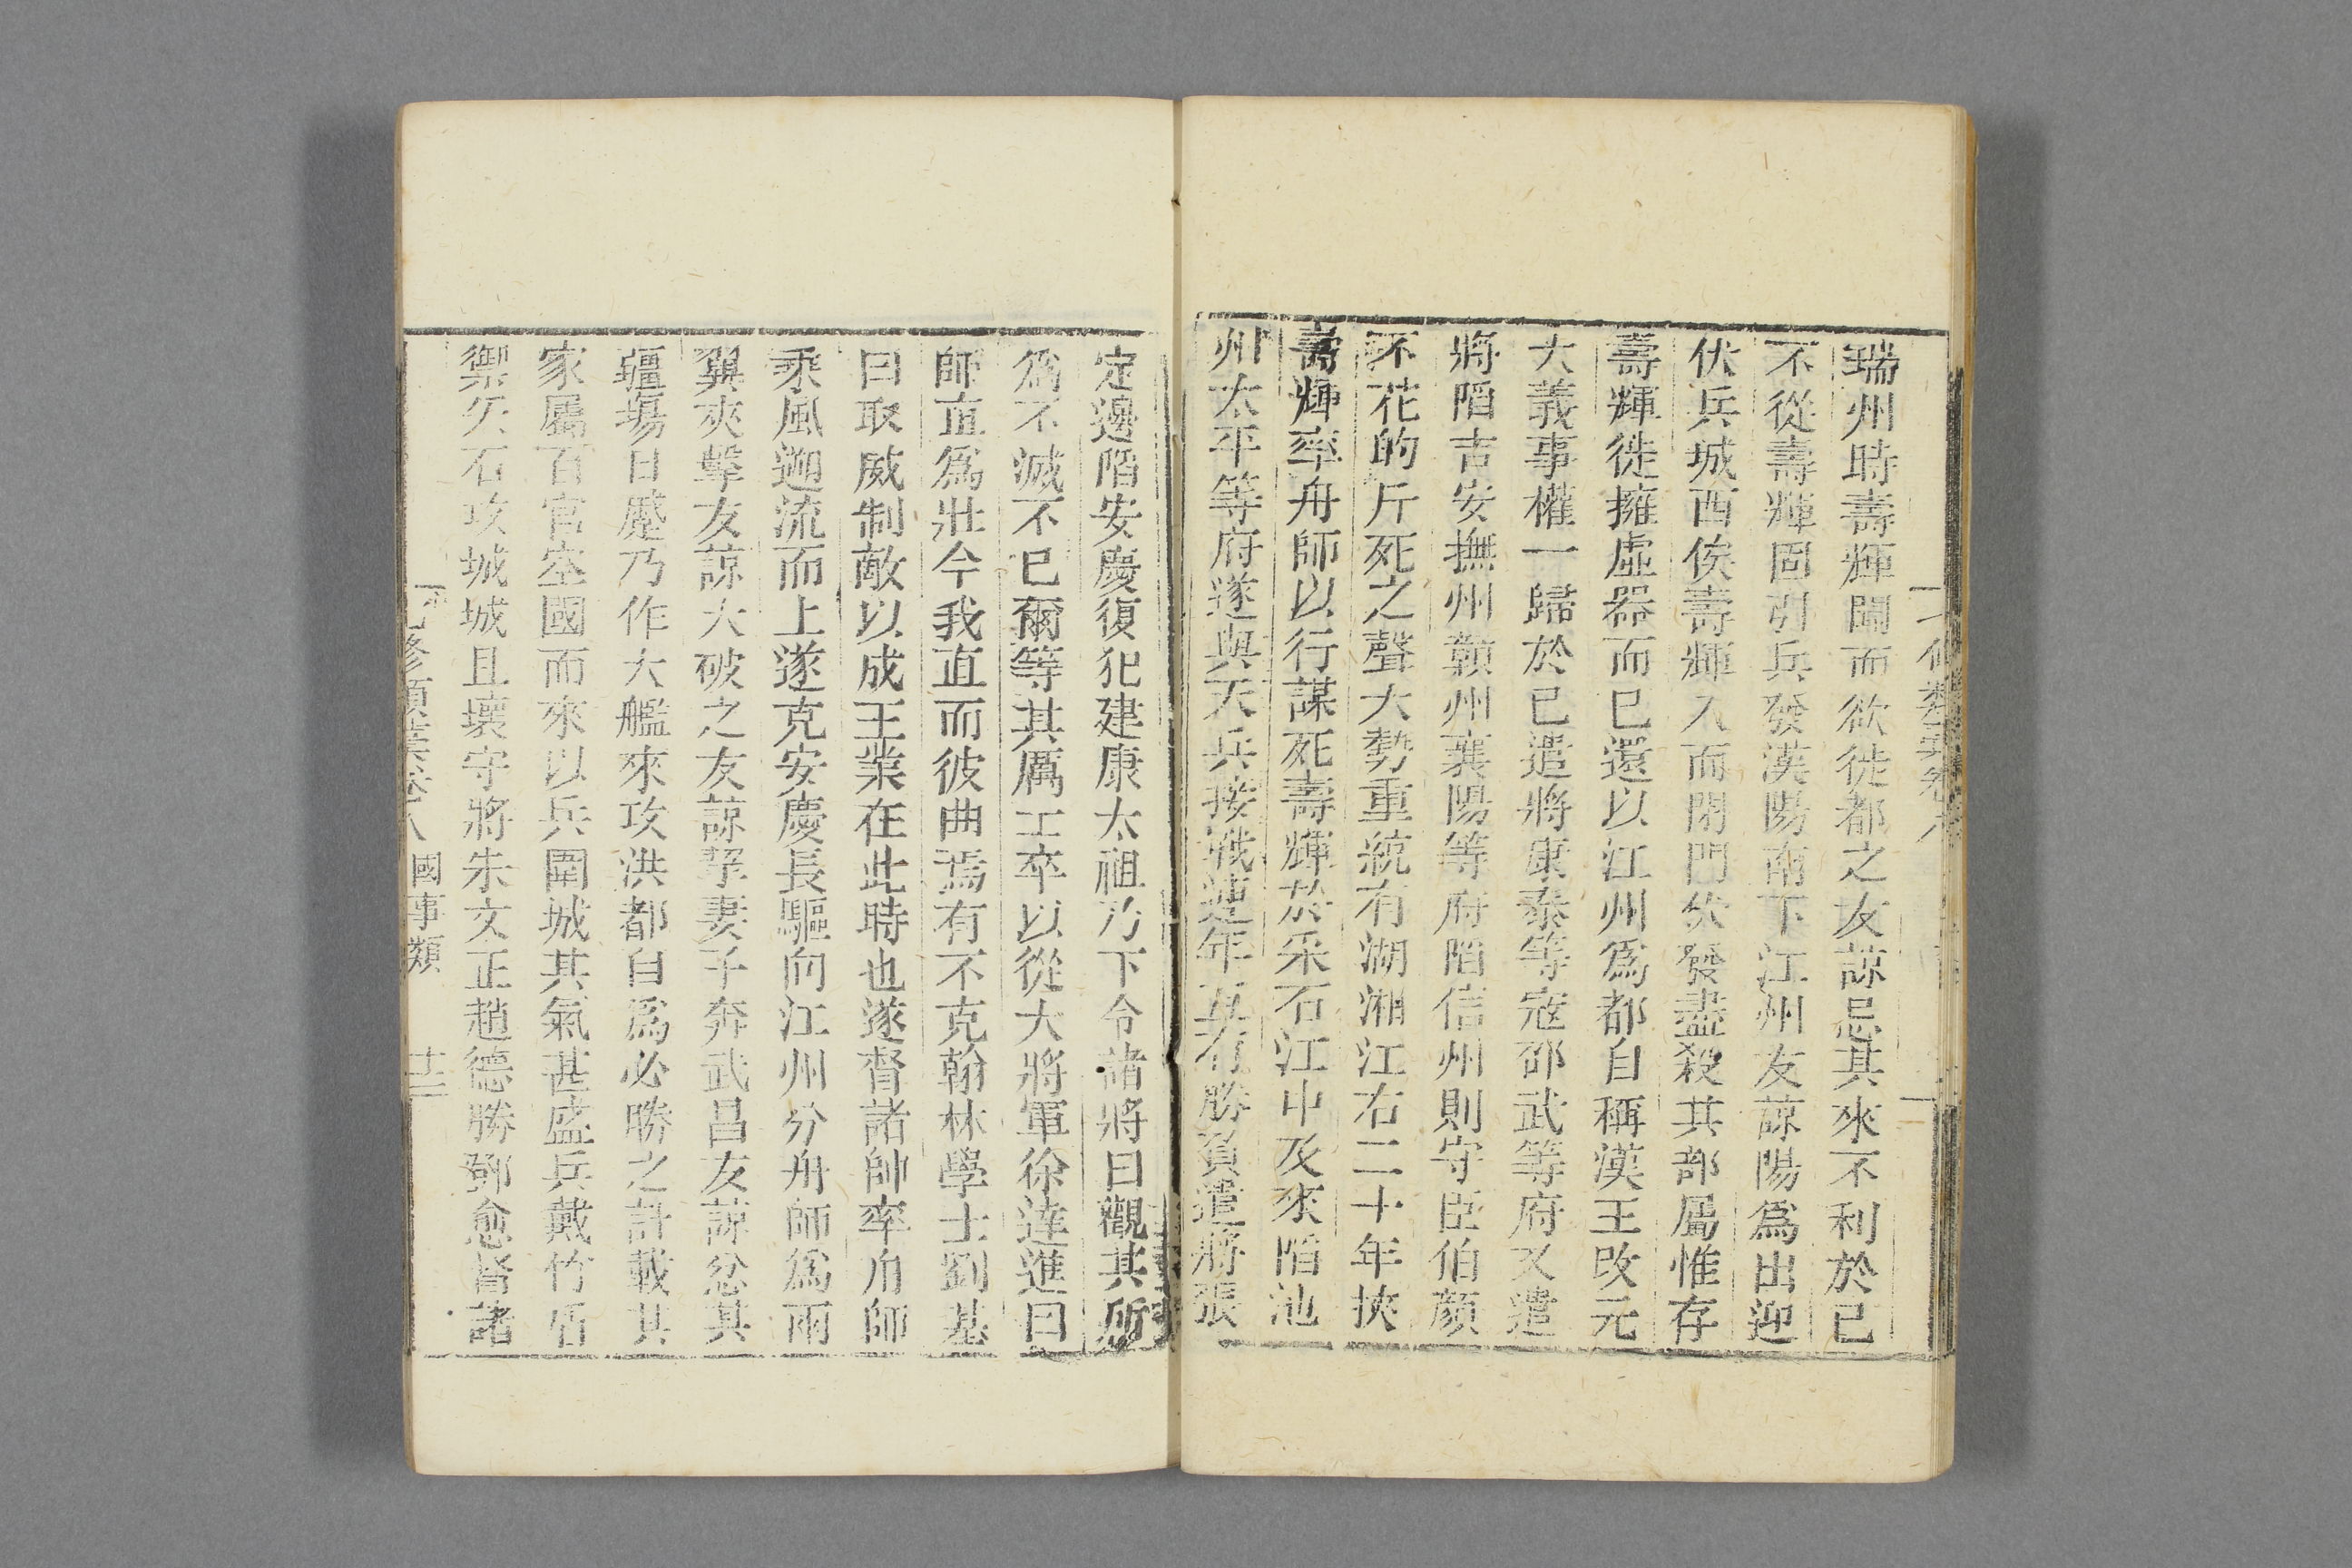 瑞州時壽輝聞而欲徙都之友諒忌其來不利於已
不從壽輝固引兵發漢陽南下江州友諒陽爲出迎
伏兵城西俟壽輝入而閉門伏發盡殺其部屬惟存
壽輝徙擁虛器而已還以江州爲都自稱漢王改元
大義事權一歸於已遣將康泰等寇邵武等府又遣
將陷吉安撫州贛州襄陽等府陷信州則守臣伯顏
不花的斤死之聲大勢重統有湖湘江右二十年挾
壽輝率舟師以行謀死壽輝於采石江中及來陷池
州太平等府遂與天兵接戰連年互有勝負遣將張
定邊陷安慶復犯建康太祖乃下令諸將曰觀其所
爲不滅不已爾等其厲士卒以從大將軍徐達進曰
師直爲壯今我直而彼曲焉有不克翰林學士劉基
曰取威制敵以成王業在此時也遂督諸帥率舟師
乘風遡流而上遂克安慶長驅向江州分舟師爲兩
翼夾擊友諒大破之友諒挈妻子奔武昌友諒忿其
疆場日蹙乃作大艦來攻洪都自爲必勝之計載其
家屬百官空國而來以兵圍城其氣甚盛兵戴竹盾
禦矢石攻城城且壞守將朱文正趙德勝鄧愈督諸
修類藁卷八 國事類 十二